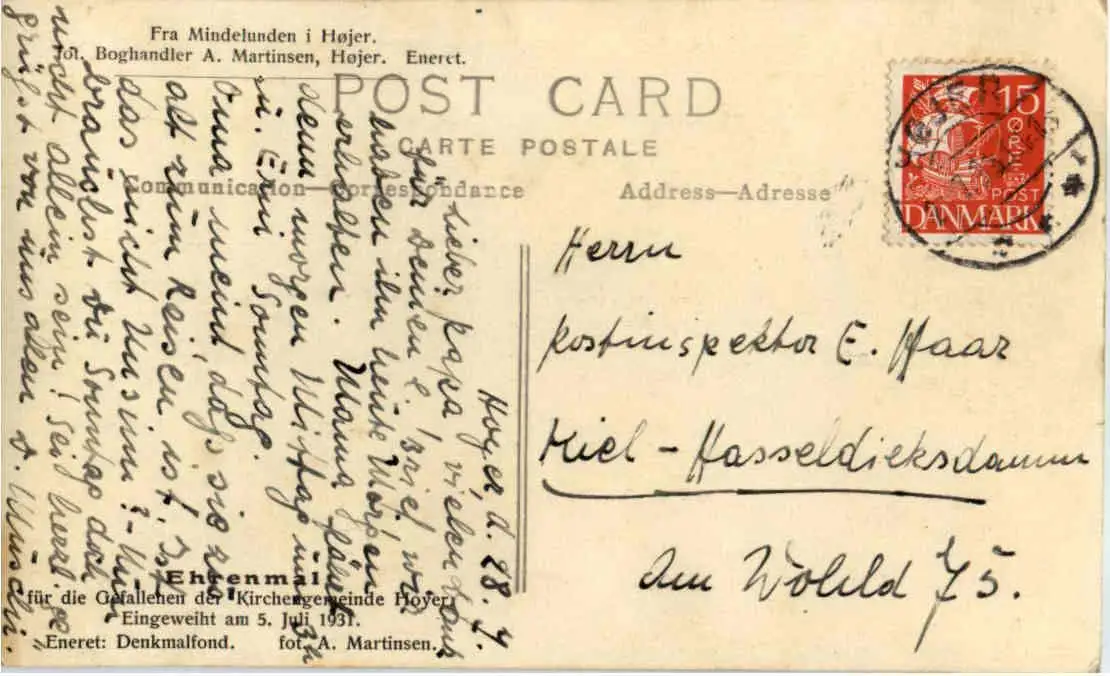 Fra Mindelunden i Højer.
fot. Boghandler A. Martinsen, Højer. Eneret.
POST CARD
CARTE POSTALE
Communication—Correspondance
Address—Adresse
15
ØRE
POST
DANMARK
Hoyer, d. 28. 4.
Lieber Papa! Vielen Dank
für Deinen Brief, wir
haben ihn heute Morgen
erhalten. Mama fährt
denn morgen Mittag um 3h
u. Erni Sonntag.
Oma meint, daß sie zu
alt zum Reisen ist. Ist
das nicht Unsinn? - Nun
brauchst Du Sonntag doch
nicht allein sein! Sei herzl. ge-
grüßt von uns allen D. Muschi.
Herrn
Postinspektor E. Haar
Kiel - Hasseldieksdamm
Am Wohld 75.
Ehrenmal
für die Gefallenen der Kirchengemeinde Hoyer
Eingeweiht am 5. Juli 1931.
Eneret: Denkmalfond. fot. A. Martinsen.